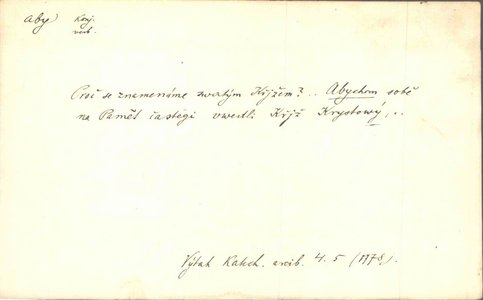 aby Konj.
verb.
Proč se znamenáme swatým Křjžem? .. Abychom sobě
na Paměť častěgi uwedli Křjž Krystowý, ..
Výtah Katech. arcib. 4. 5 (1778).